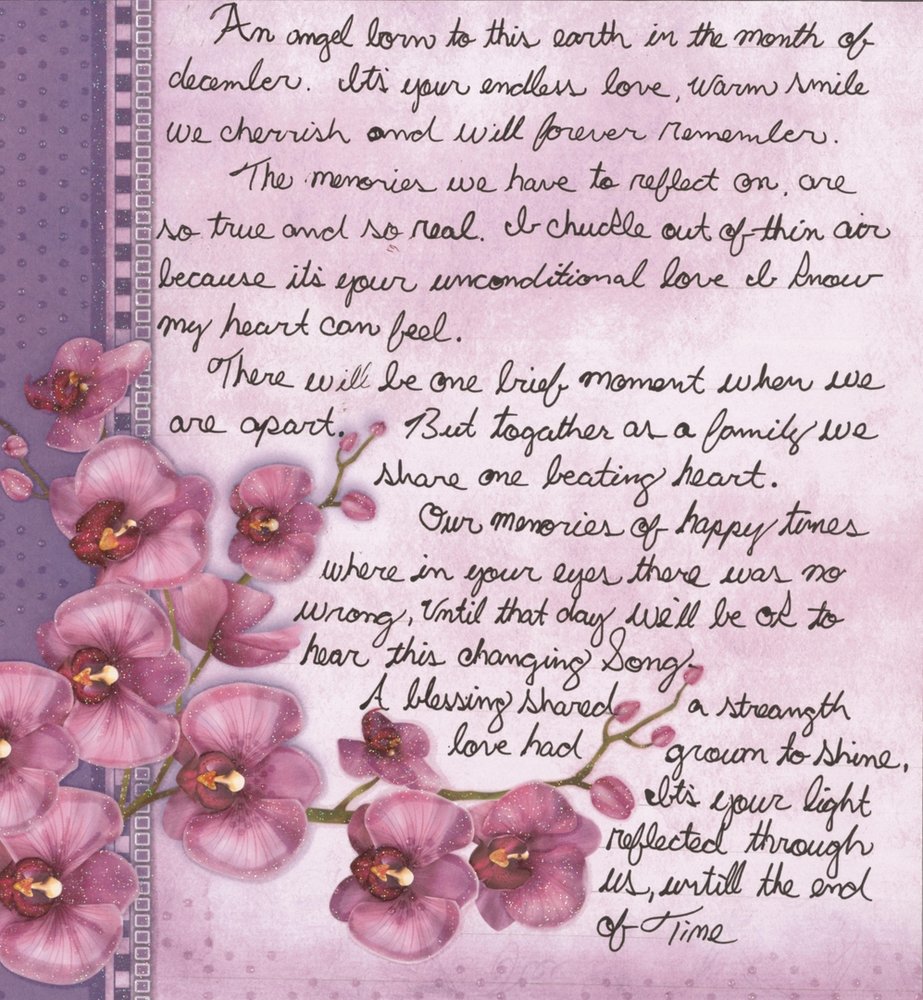 An angel born to this earth in the month of
december. It's your endless love, warm smile
we cherrish and will forever remember.
The memories we have to reflect on, are
so true and so real. I chuckle out of thin air
because it's your unconditional love I know
my heart can feel.
There will be one brief moment when we
are apart. But togather as a family we
share one beating heart.
Our memories of happy times
where in your eyes there was no
wrong, Until that day we'll be ok to
hear this changing Song.
A blessing shared a streangth
love had grown to shine,
It's your light
reflected through
us, untill the end
of Time